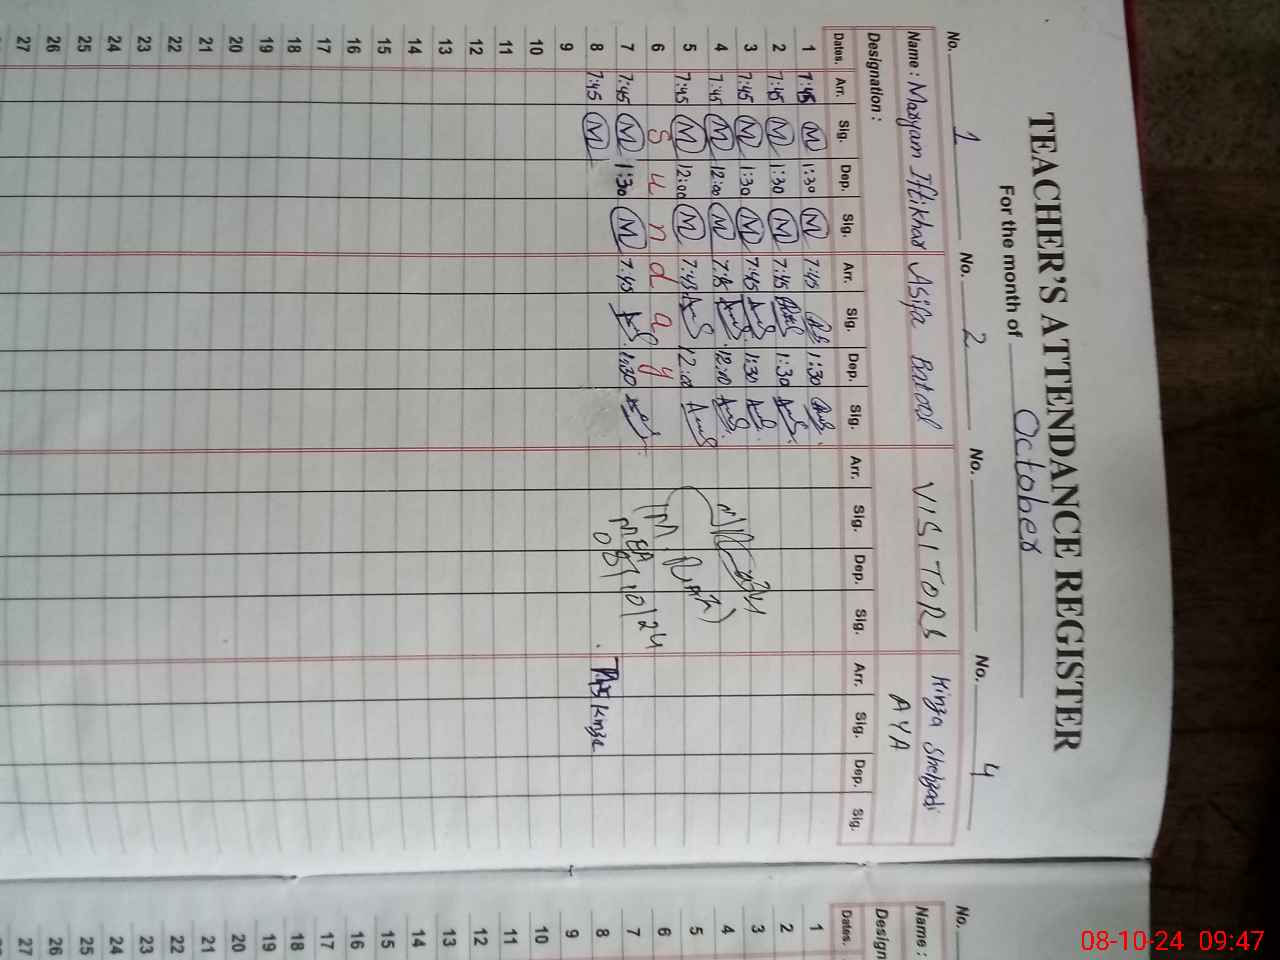 TEACHER'S ATTENDANCE REGISTER
For the month of October
No. 1 No. 2 No. No. 4
Name : Maryam Iftikhar Asifa Batool VISITORS Kinza Shehzadi
Designation : AYA
Dates. Arr. Sig. Dep. Sig. Arr. Sig. Dep. Sig. Arr. Sig. Dep. Sig. Arr. Sig. Dep. Sig.
1 7:45 M 1:30 M 7:45 1:30
2 7:45 M 1:30 M 7:45 1:30
3 7:45 M 1:30 M 7:45 1:30
4 7:45 M 12:00 M 7:45 12:00
5 7:45 M 12:00 M 7:45 12:00
6 Sunday
7 7:45 M 1:30 M 7:45 1:30
8 7:45 M 7:45 Kinza
MEA
08/10/24
9
10
11
12
13
14
15
16
17
18
19
20
21
22
23
24
25
26
27
No.
Name :
Design
Dates.
1
2
3
4
5
6
7
8
9
10
11
12
13
14
15
16
17
18
19
20
21
22
23
24
25
26
27
08-10-24 09:47